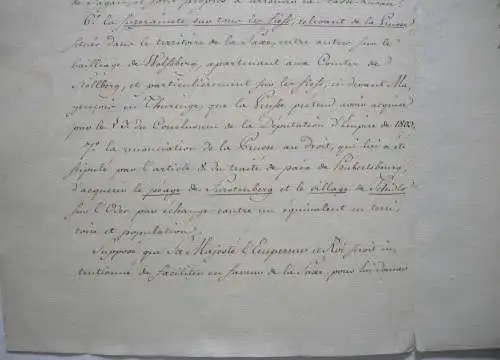 6° la suzeraineté sur tous les fiefs, relevant de la Prusse
situés dans le territoire de la Saxe, entre autres sur le
bailliage de Wolfsberg, apartenant aux Comtes de
Stollberg, et particulièrement sur les fiefs, ci-devant Ma,
yençois en Thuringe, que la Prusse prétend avoir acquis
par le § 3 du Conclusum de la Députation d'Empire de 1803,
7° la renonciation de la Prusse au droit, qui lui a été
stipulé par l'article 8 du traité de paix de Hubertsbourg,
d'acquerir le péage de Furstenberg et le village de Schidlo
sur l'Oder par échange contre un équivalent en terri,
toire et population.
Supposé que Sa Majesté l'Empereur et Roi seroit in
tentionné de faciliter en faveur de la Saxe, pour lui donner